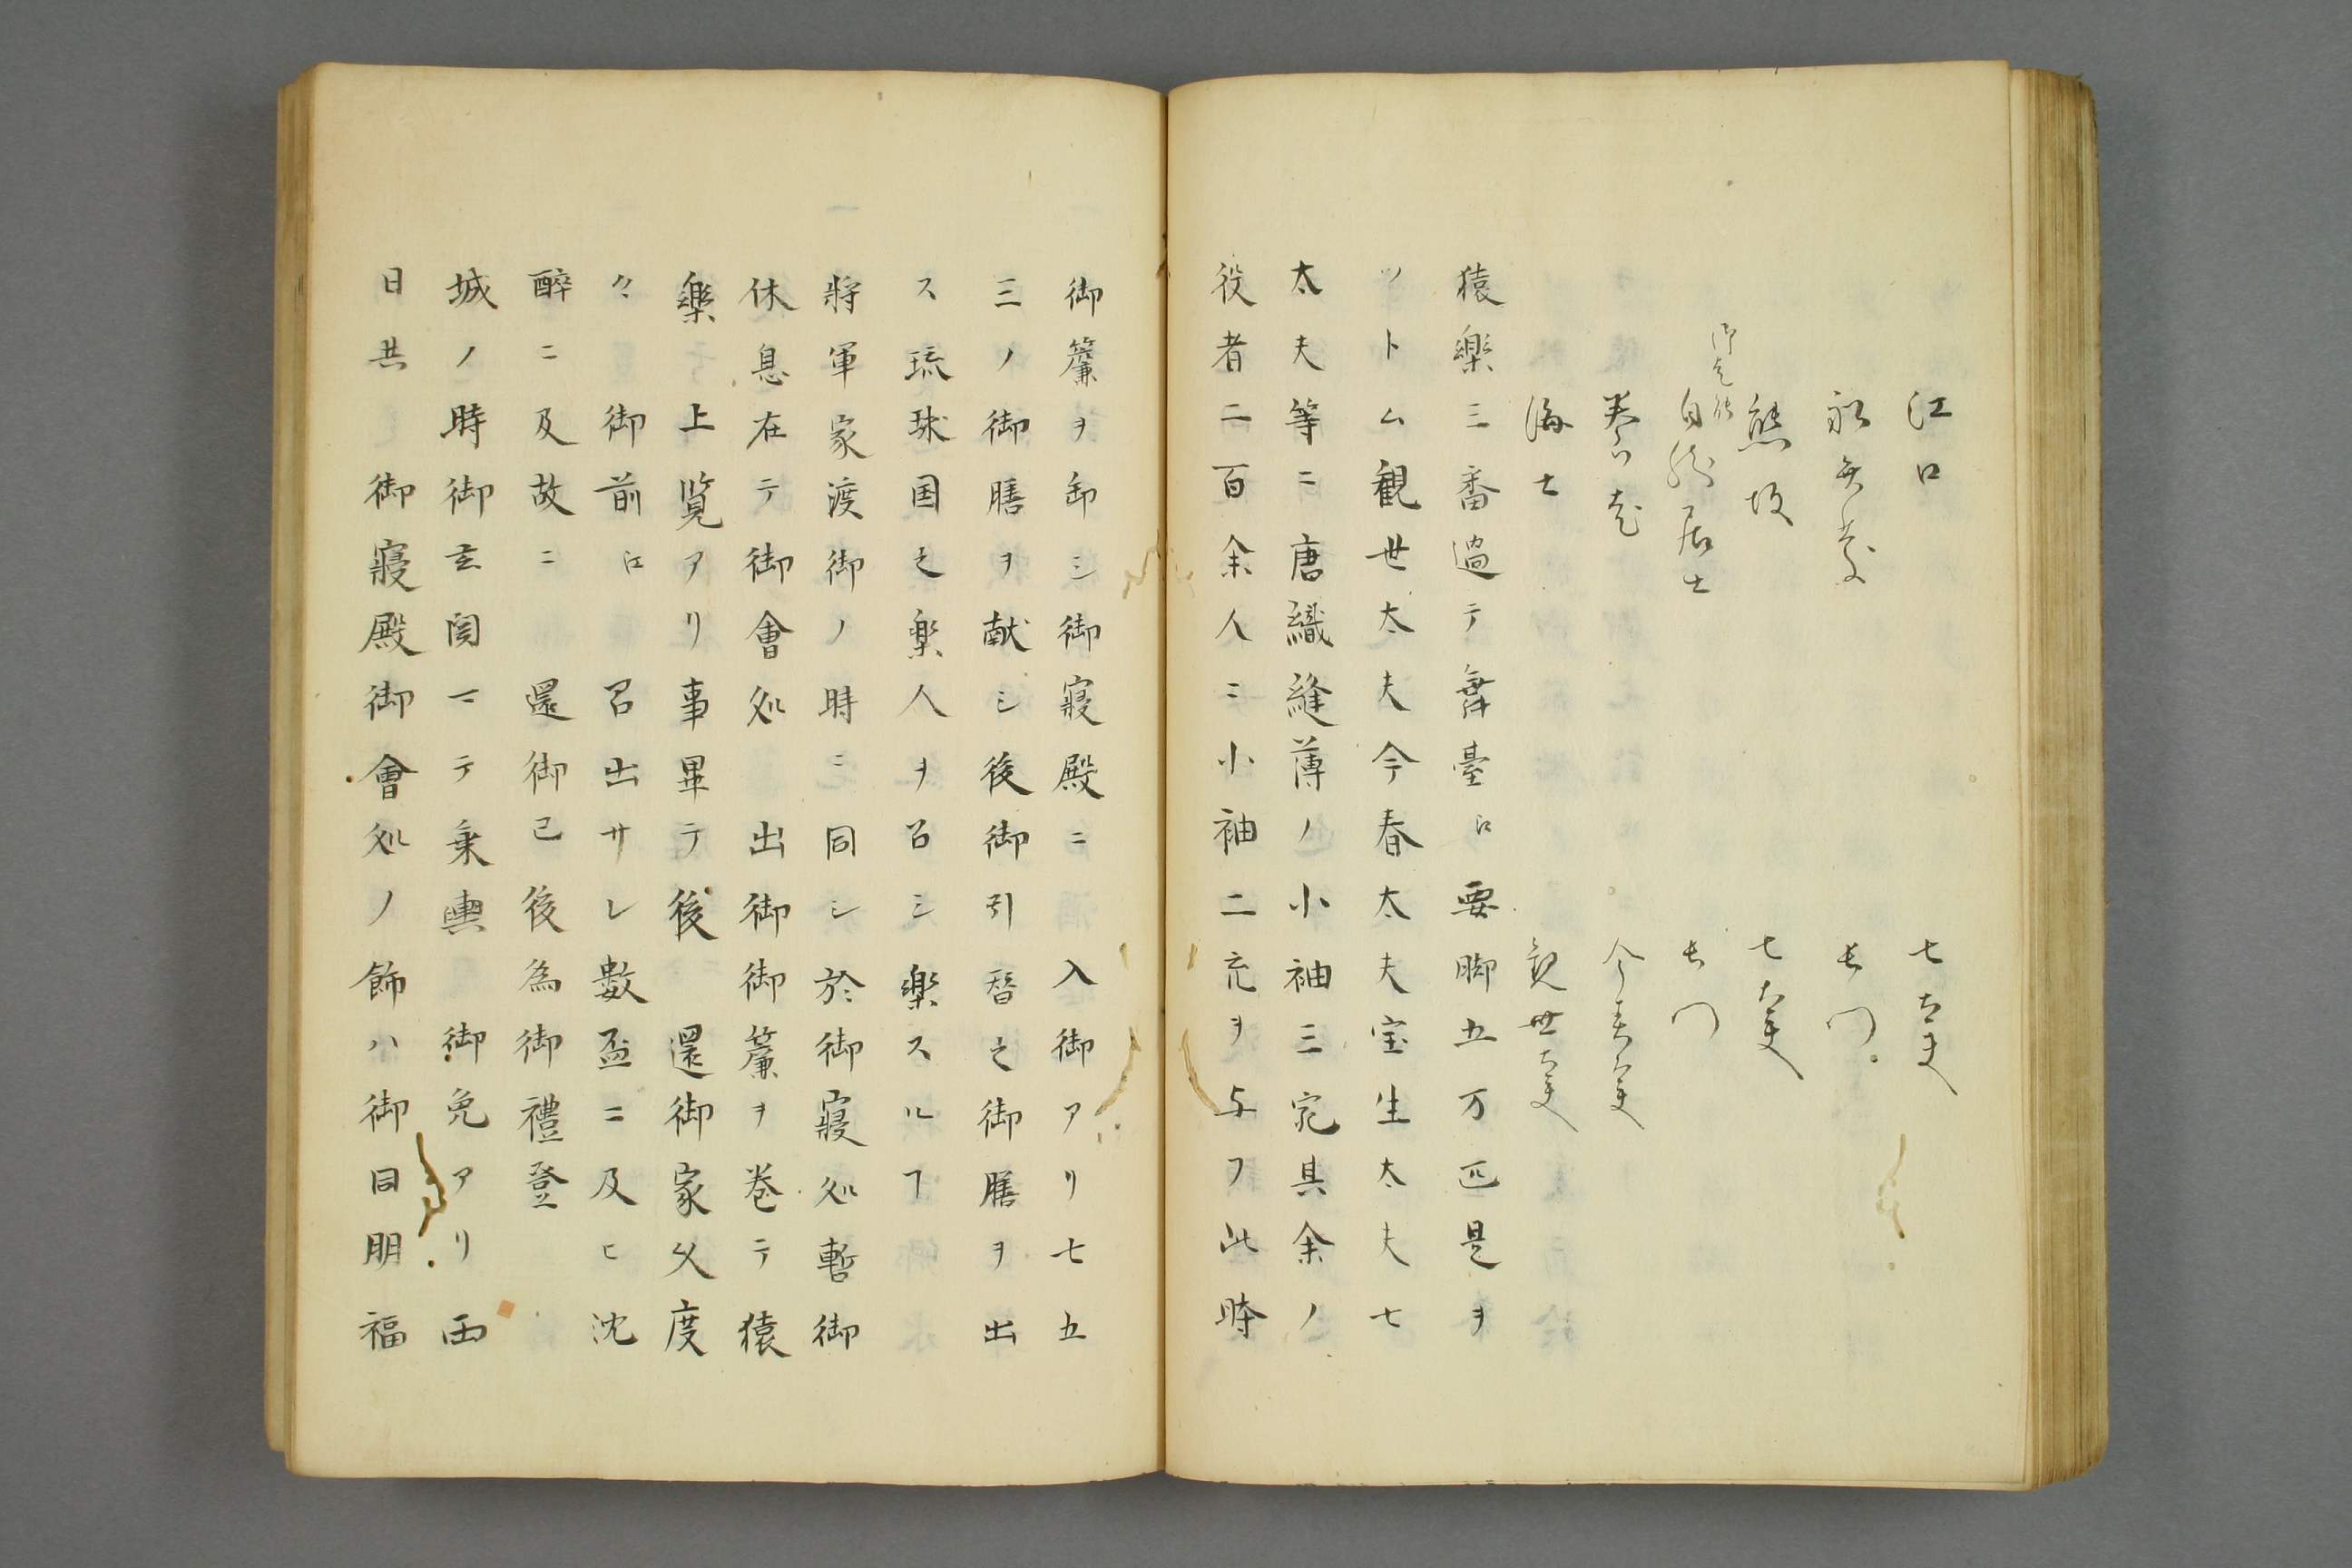 江口 七太夫
舩弁慶 長門
熊坂 七太夫
御乞能 自然居士 長門
養老 今春太夫
海士 観世太夫
猿樂三番過テ舞臺江要脚五万匹是ヲ
ツトム観世太夫今春太夫宝生太夫七
太夫等ニ唐織縫薄ノ小袖三宛其余ノ
役者二百余人ニ小袖二充ヲ与フ此時
御簾ヲ卸シ御寢殿ニ入御アリ七五
三ノ御膳ヲ献シ後御引替之御膳ヲ出
ス琉球国之楽人ヲ召シ楽スルヿ
將軍家渡御ノ時ニ同シ於御寢処暫御
休息在テ御會処出御御簾ヲ巻テ猿
樂上覧アリ事畢テ後還御家父度
々御前江召出サレ數盃ニ及ヒ沈
醉ニ及故ニ還御已後為御禮登
城ノ時御玄関ニテ乗輿御免アリ両
日共御寢殿御會処ノ飾ハ御同朋福